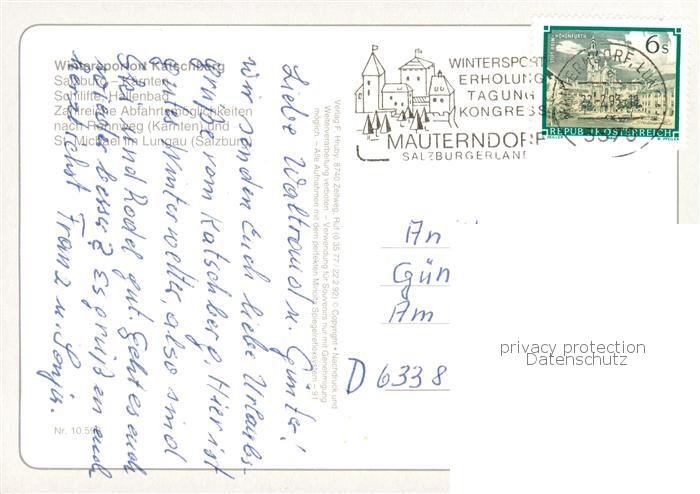 Wintersportort Katschberg
Salzburg – Kärnten
Schilifte, Hallenbad
Zahlreiche Abfahrtmöglichkeiten
nach Rennweg (Kärnten) und
St. Michael im Lungau (Salzburg)
Nr. 10.59
Liebe Waltraud u. Günter!
wir senden Euch liebe Urlaubs-
grüße vom Katschberg. Hier ist
Winterwetter, also sind
und Rodel gut. Geht es euch
besser? Es grüßen euch
Franz u. Sonja.
Verlag F. Hruby, 8740 Zeltweg, Ruf (0 35 77 / 22 2 92) © Copyright • Nachdruck und
Weiterverarbeitung verboten – Verwendung für Souvenirs nur mit Genehmigung
möglich. – Alle Aufnahmen mit dem perfekten Minolta-Spiegelreflexsystem – 91
WINTERSPORT
ERHOLUNG
TAGUNG
KONGRESS
MAUTERNDORF
SALZBURGERLAND
6 S
REPUBLIK ÖSTERREICH
An
Gün
Am
D 6338
privacy protection
Datenschutz